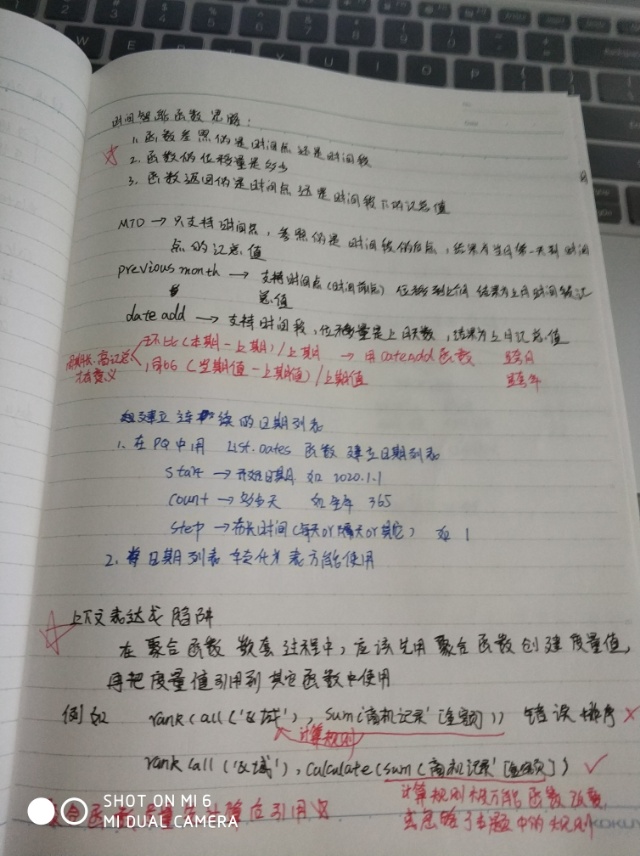 时间智能函数思路:
1. 函数参照值是时间点还是时间段
2. 函数的位移量是多少
3. 函数返回值是时间点还是时间段下的汇总值
MTD → 只支持时间点, 参照值是时间段的后点, 结果为当月第一天到时间
点的汇总值
previous month → 支持时间点(时间前点) 位移到上月 结果为上月时间段汇
总值
date add → 支持时间段, 位移量是上月天数, 结果为上月汇总值
环比(本期-上期)/上期 → 用dateadd函数
同比(当期值-上期值)/上期值
建立连续的日期列表
1. 在PQ中用 List.Dates 函数 建立日期列表
Start → 开始日期 如 2020.1.1
Count → 多少天 如全年 365
Step → 布长时间(每天or隔天or其它) 如 1
2. 将日期列表转化为表方能使用
上下文表达式陷阱
在聚合函数 数套过程中, 应该先用聚合函数创建度量值,
再把度量值引用到其它函数中使用
例如 rank(all('区域'), sum('商机记录'[金额])) 错误排序 ×
计算规则
rank(all('区域'), Calculate(sum('商机记录'[金额])) ✓
SHOT ON MI 6
MI DUAL CAMERA